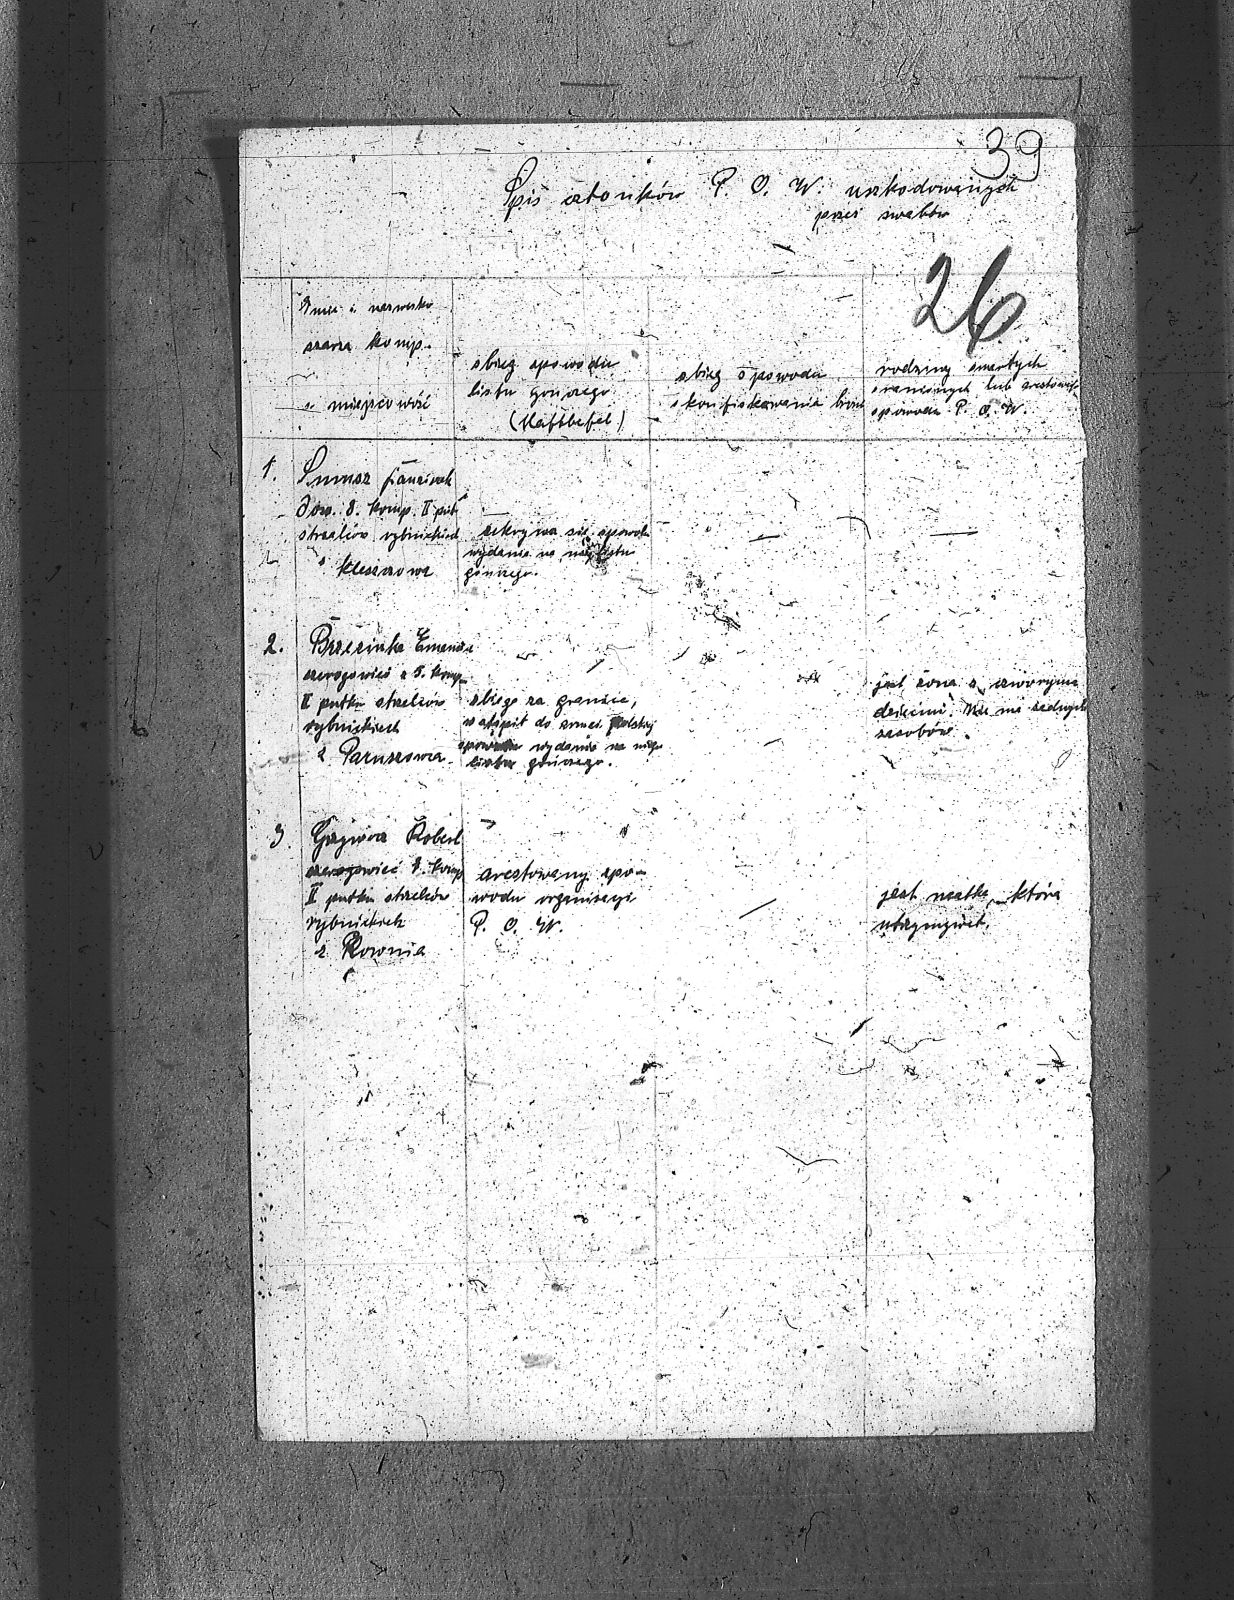 39
Spis członków P. O. W. uszkodowanych
przez swabów
26
Imie i nazwisko
szarża komp.
z miejscowość
zbieg spowodu
listu gończego
(Haftbefel)
zbieg spowodu
skonfiskowania broni
rodziny zmartych
zranionych lub aresztow.
spowodu P. O. W.
1. Franciszek
Dow. 8. komp. II puł
strzelców rybnickich
z Kleszczowa
zekrywa się spowodu
wydania na niego listu
gończego.
2. Brzezinka
szeregowieć z 5. komp.
II pułku strzelców
rybnickich
z Paruszowca
zbiego za granice,
wstąpił do armei Polskej
spowodu wydania na niego
listu gończego.
jest żona z czworgiem
dziećmi. Nie ma żadnych
zasobów.
3. Robert
szeregowieć 8. komp
II pułku strzelców
rybnickich
z Rownia
arestowany spo-
wodu organizacji
P. O. W.
jest matka, która
utrzymywał.